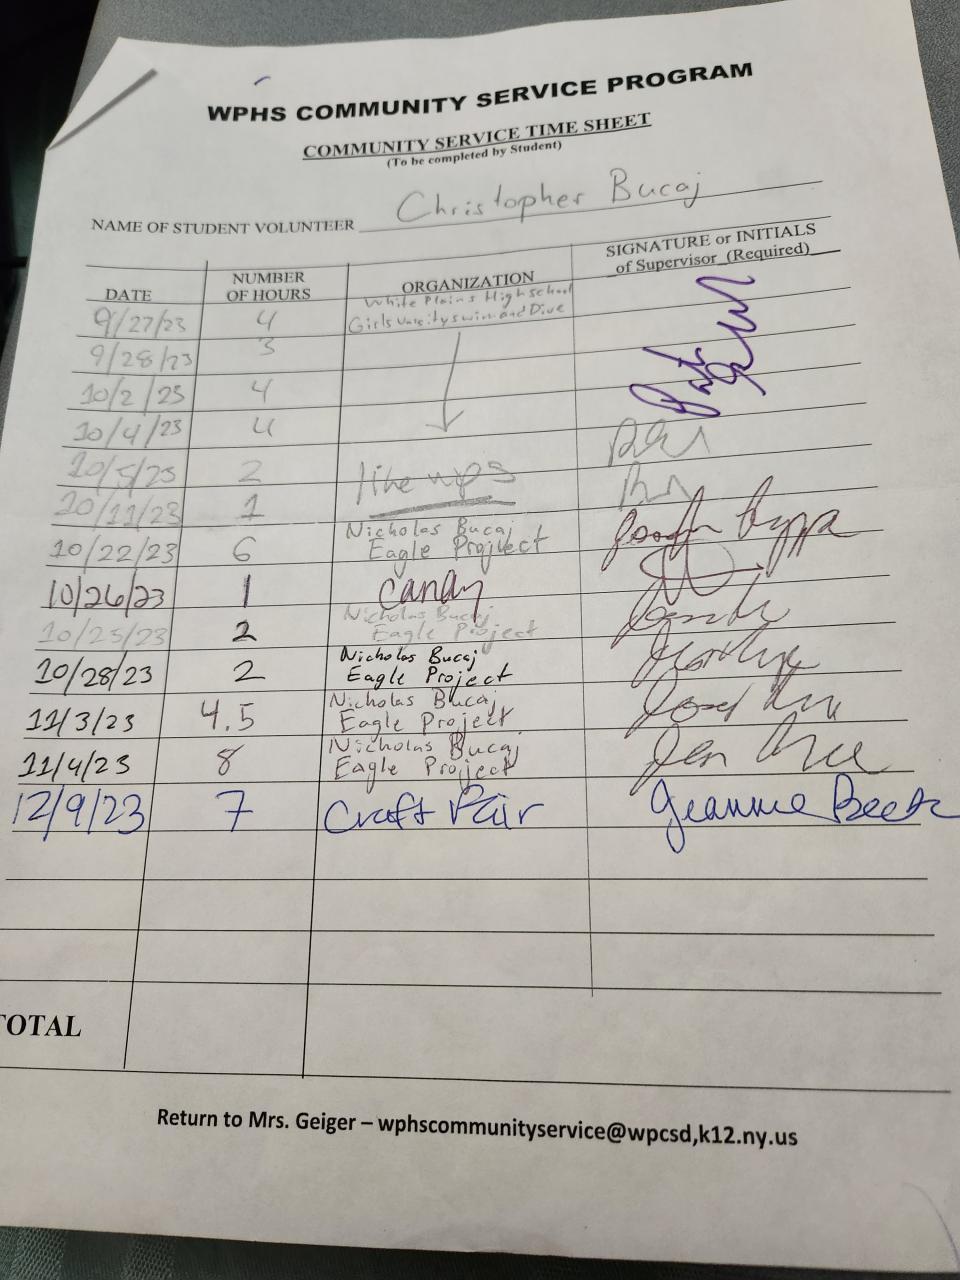 WPHS COMMUNITY SERVICE PROGRAM
COMMUNITY SERVICE TIME SHEET
(To be completed by Student)
NAME OF STUDENT VOLUNTEER Christopher Bucaj
DATE NUMBER OF HOURS ORGANIZATION SIGNATURE or INITIALS of Supervisor (Required)
9/27/23 4 White Plains High school Girls Varsity swim and Dive
9/28/23 3
10/2/23 4
10/4/23 4
10/5/23 2
10/11/23 1
10/22/23 6 Nicholas Bucaj Eagle Project
10/26/23 1 Candy
10/25/23 2 Nicholas Bucaj Eagle Project
10/28/23 2 Nicholas Bucaj Eagle Project
11/3/23 4.5 Nicholas Bucaj Eagle Project
11/4/23 8 Nicholas Bucaj Eagle Project
12/9/23 7 Craft Fair Jeannie
TOTAL
Return to Mrs. Geiger – wphscommunityservice@wpcsd,k12.ny.us